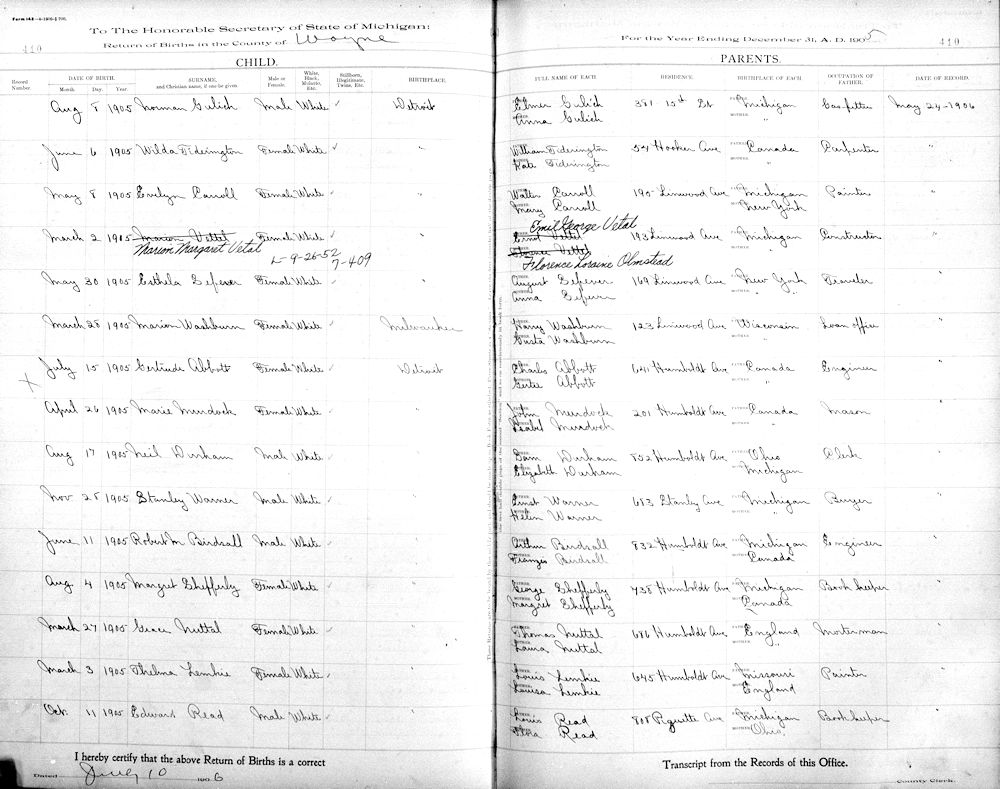 Form 143
To The Honorable Secretary of State of Michigan:
410
Return of Births in the County of Wayne
CHILD.
Record Number
DATE OF BIRTH.
Month. Day. Year.
SURNAME, and Christian name, if one be given.
Male or Female.
White, Black, Mulatto, Etc.
Stillborn, Illegitimate, Twins, Etc.
BIRTHPLACE.
Aug 8 1905 Norman Gulich Male White ✓ Detroit
June 6 1905 Wilda Tiderington Female White ✓ "
May 8 1905 Evelyn Carroll Female White ✓ "
March 2 1905 Marion Vettel Female White ✓ "
Marion Margaret Vetal
L-9-26-52
7-409
May 30 1905 Esthela Lefever Female White ✓ "
March 28 1905 Marion Washburn Female White ✓ Milwaukee
July 15 1905 Gertrude Abbott Female White ✓ Detroit
X
April 26 1905 Marie Murdoch Female White ✓ "
Aug 17 1905 Neil Durham Male White ✓ "
Nov 28 1905 Stanley Warner Male White ✓ "
June 11 1905 Robert M Birdsall Male White ✓ "
Aug 4 1905 Margret Shefferly Female White ✓ "
March 27 1905 Grace Nuttal Female White ✓ "
March 3 1905 Thelma Lemkie Female White ✓ "
Oct 11 1905 Edward Read Male White ✓ "
I hereby certify that the above Return of Births is a correct
Dated July 10 1906
For the Year Ending December 31, A. D. 1905
410
PARENTS.
FULL NAME OF EACH.
RESIDENCE.
BIRTHPLACE OF EACH
OCCUPATION OF FATHER
DATE OF RECORD.
Elmer Gulich 381 15th St Michigan May 24-1906
Anna Gulich "
William Tiderington 54 Hooker Ave Canada Carpenter "
Kate Tiderington "
Walter Carroll 190 Linwood Ave Michigan Painter "
Mary Carroll New York
Emil George Vetal
Ernst Vettel 193 Linwood Ave Michigan Constructor "
Florence Vettel "
Florence Loraine Olmstead
August Lefever 169 Linwood Ave New York Traveler "
Anna Lefever "
Harry Washburn 123 Linwood Ave Wisconsin Loan office "
Gusta Washburn "
Charles Abbott 641 Humboldt Ave Canada Engineer "
Gertie Abbott "
John Murdock 201 Humboldt Ave Canada Mason "
Isabel Murdoch "
Sam Durham 852 Humboldt Ave Ohio Clerk "
Elizabeth Durham Michigan
Ernst Warner 683 Stanley Ave Michigan Buyer "
Helen Warner "
Arthur Birdsall 832 Humboldt Ave Michigan Engineer "
Frances Birdsall Canada
George Shefferly 738 Humboldt Ave Michigan Book keeper "
Margret Shefferly Canada
Thomas Nuttal 686 Humboldt Ave England Motorman "
Laura Nuttal "
Louis Lemkie 645 Humboldt Ave Missouri Painter "
Louisa Lemkie England
Louis Read 808 Piquette Ave Michigan Book keeper "
Read Ohio
Transcript from the Records of this Office.
County Clerk.